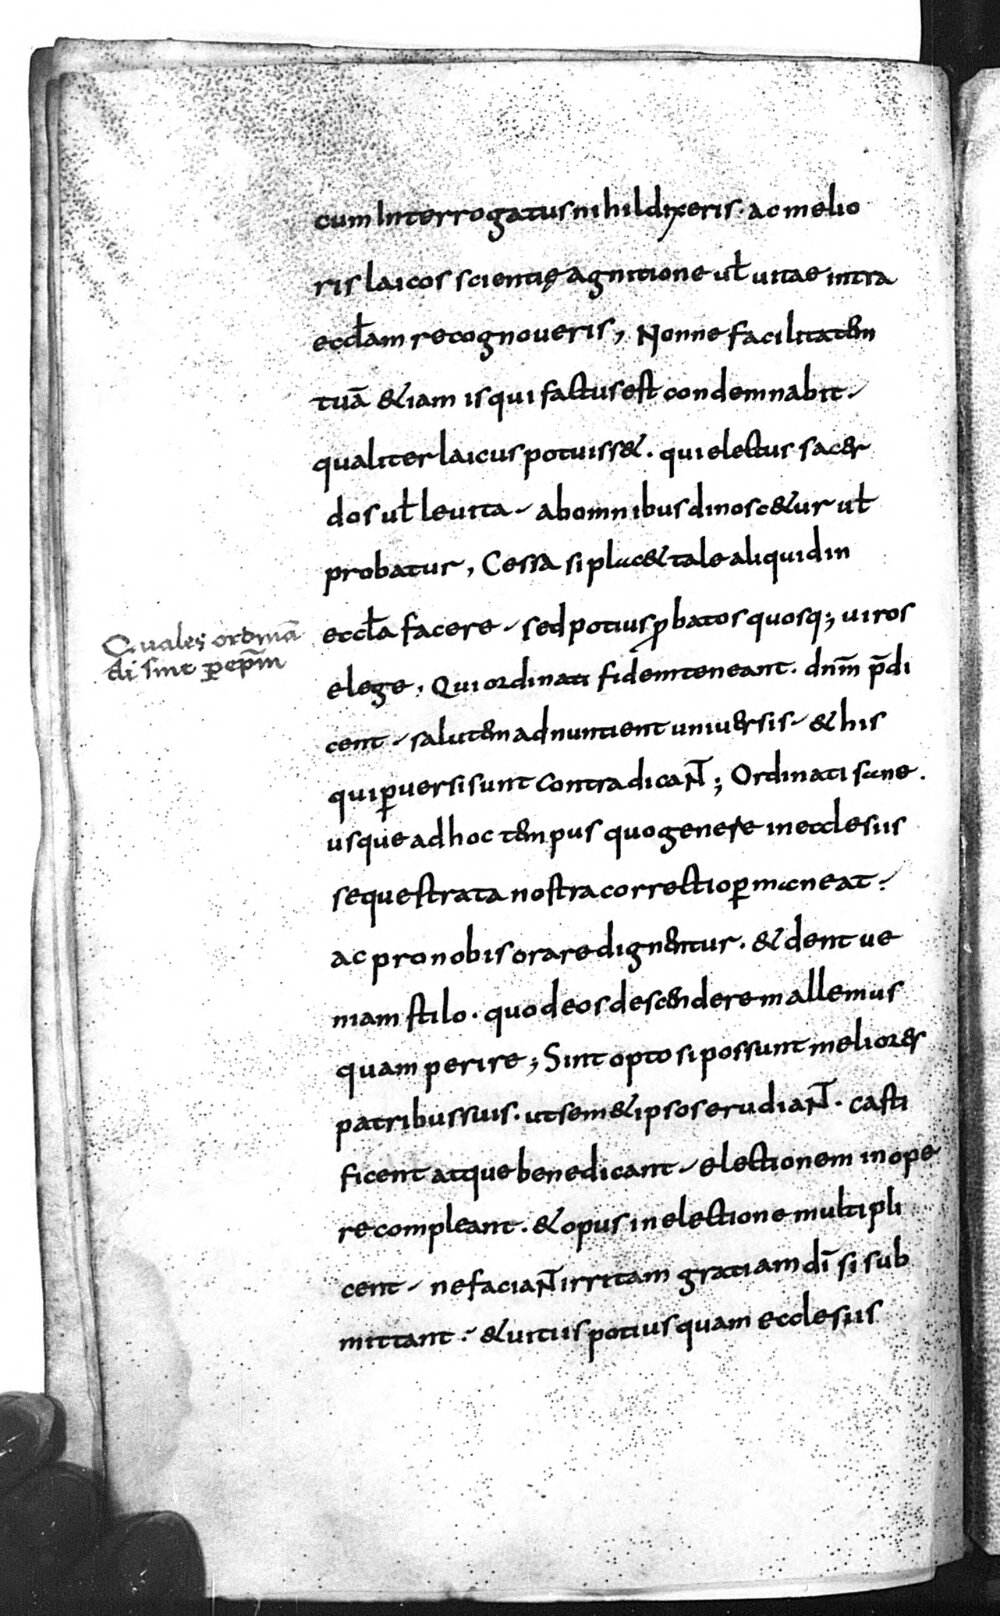 cum Interrogatus nihil dixeris · ac melio
ris laicos scientię agnitione ul̄ uitae intra
eccl̄am recognoueris, Nonne facilitatem
tuā &iam is qui factus est condemnabit ·
qualiter laicus potuiss& · qui electus sacer
dos ul̄ leuita · ab omnibus dinosc&ur ul̄
probatur, Cessa si plac& tale aliquid in
eccl̄a facere · sed potius ꝓbatos quosq; uiros
elege, Qui ordinati fidem teneant · dn̄m p̄di
cent · salutem adnuntient uniuersis · & his
qui ꝑuersi sunt contradicaNT̄; Ordinati sane ·
usque ad hoc tempus quo genere in ecclesiis
sequestrata nostra correctio ꝑmaneat ·
ac pro nobis orare dignentur · & dent ue
niam stilo · quod eos descendere mallemus
quam perire; Sint opto si possunt meliores
patribus suis · ut sem& ipsos erudiaNT̄ · casti
ficent atque benedicant · electionem in ope
re compleant · & opus in electione multipli
cent · ne faciaNT̄ irritam gratiam dī si sub
mittant · & uitiis potius quam ecclesiis
Quales ordinā
di sint ꝑ ep̄m